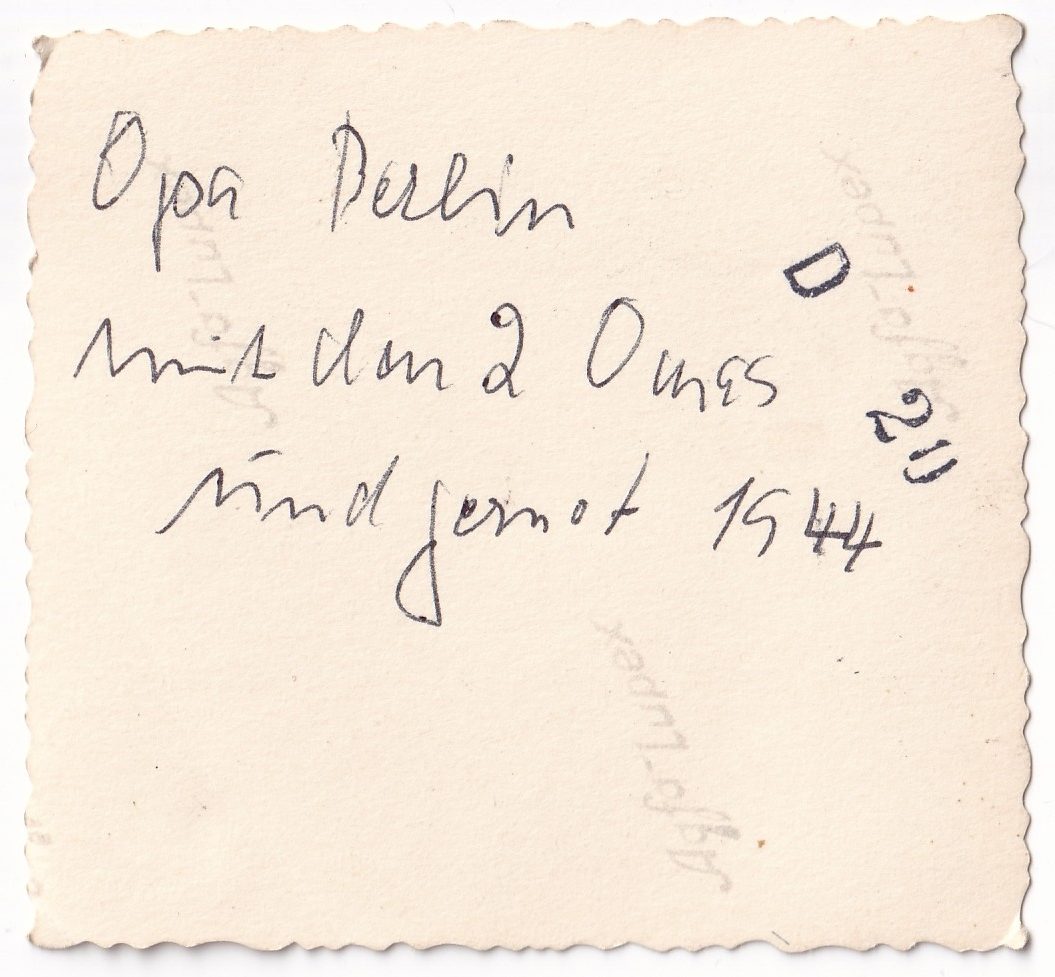 Opa Berlin
mit den 2 Omas
und Gernot 1944
D
211
Agfa-Lupex
Agfa-Lupex
Agfa-Lupex